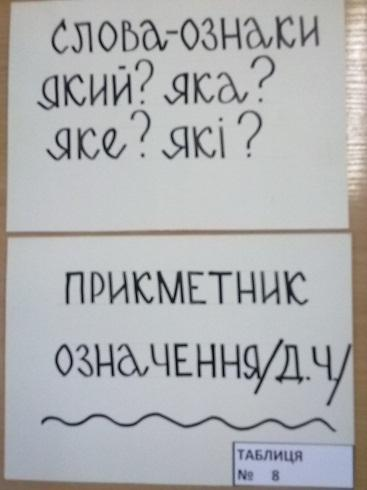 слова-ознаки
який? яка?
яке? які?
ПРИКМЕТНИК
ОЗНАЧЕННЯ/Д.Ч/
ТАБЛИЦЯ
№ 8